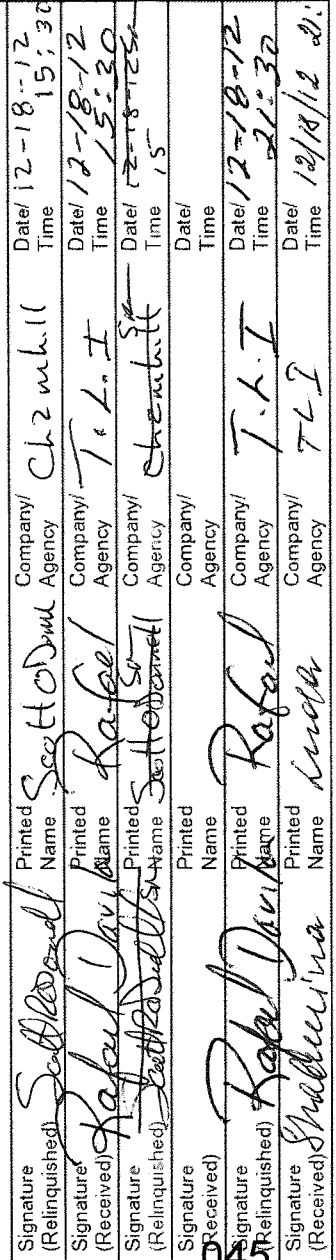 Signature (Relinquished) Scott O'Donnell Printed Name Scott O'Donnell Company/ Agency Ch2mhill Date/ Time 12-18-12 15:30
Signature (Received) Rafael Davila Printed Name Rafael Company/ Agency T.L.I Date/ Time 12-18-12 15:30
Signature (Relinquished) Scott O'Donnell Printed Name Scott O'Donnell Company/ Agency Chemhill Date/ Time 12-18-12 15
Signature (Received) Printed Name Company/ Agency Date/ Time
Signature (Relinquished) Rafael Davila Printed Name Rafael Company/ Agency T.L.I Date/ Time 12-18-12 21:30
Signature (Received) Printed Name Linda Company/ Agency TLI Date/ Time 12/18/12
045